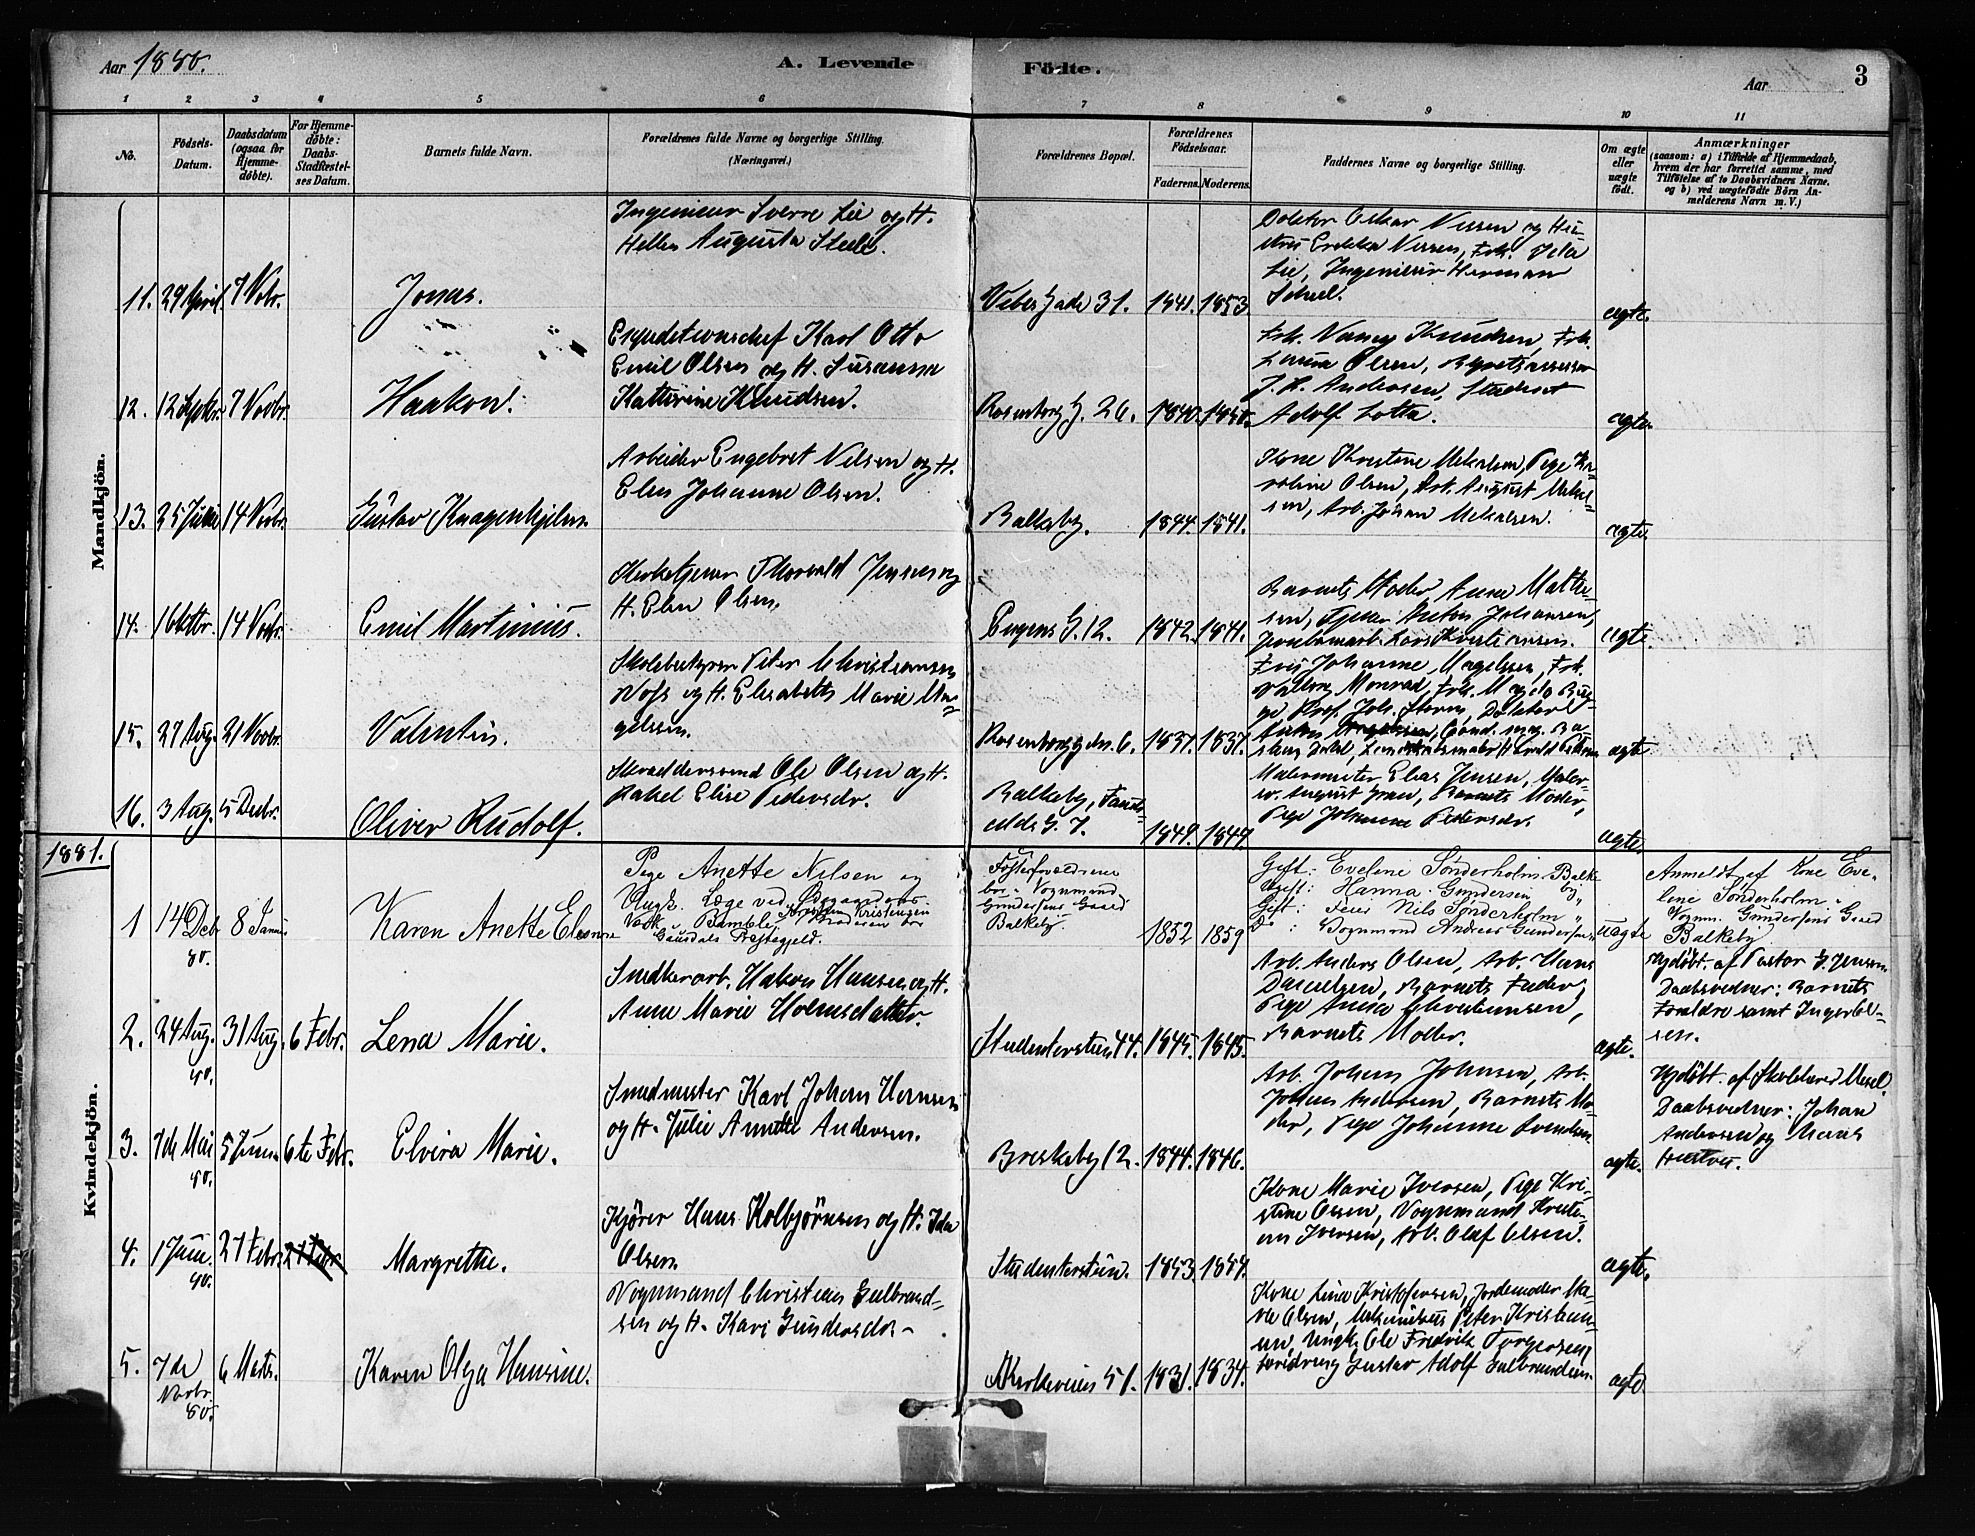 Aar 1880. A. Levende Födte. Aar 3
1 2 3 4 5 6 7 8 9 10 11
No.
Födsels-Datum.
Daabsdatum (ogsaa for Hjemme-døbte).
For Hjemme-døbte: Daabs-Stadfæstel-ses Datum.
Barnets fulde Navn.
Forældrenes fulde Navne og borgerlige Stilling.
(Næringsvei.)
Forældrenes Bopæl.
Forældrenes Födselsaar.
Faderens. Moderens.
Faddernes Navne og borgerlige Stilling.
Om ægte eller uægte födt.
Anmærkninger
(saasom: a) i Tilfælde af Hjemmedaab,
hvem der har forrettet samme, med
Tilføielse af to Daabsvidners Navne,
og b) ved uægtefödte Börn An-
melderens Navn m. V.)
Mandkjön.
11. 29 April. 7 Nobr. Jonas.
Ingeniør Sverre Lie og H.
Hellen Augusta Steele.
Vibes Gade 31. 1841. 1853.
Doktor Oskar Nissen og Hu-
stru Nissen, Frk.
Lie, Ingeniør Herman
Scheel.
ægte.
12. 12 Septbr. 7 Novbr. Haakon.
Expeditionschef Karl Otto
Emil Olsen og H. Susanna
Kathrine Knudsen.
Rosenborg G. 26. 1840. 1850.
Frk. Nancy Knudsen, Frk.
Olsen, Byretsassessor
J. H. Andresen, Student
Adolf Lotta.
ægte.
13. 25 Juli 14 Novbr. Gustav Knagenhjelm.
Arbeider Engebret Nilsen og H.
Elen Johanne Olsen.
Balkeby. 1844. 1841.
Kone Kristine Mikalsen, Pige Ka-
roline Olsen, Arb. August Mikal-
sen, Arb. Johan Mikalsen.
ægte.
14. 16 Oktbr. 14 Novbr. Emil Martinius.
Kirketjener Thorvald Jensen og
H. Elen Olsen.
Eugens G. 12. 1842. 1841.
Barnets Moder Anne Mathi-
sen, Tjener Anton Johansen,
Lars Kristiansen.
ægte.
15. 27 Aug. 21 Novbr. Valentin.
Skolebestyrer Peter Christiansen
Voss og H. Elisabeth Marie Ma-
gelssen.
Rosenborggden. 6. 1837. 1837.
Fru Johanne Magelssen, Frk.
Monrad, Frk. Magda Bug-
ge, Prof. Joh. Storm, Doktor
Anton Magelssen, Cand. mag.
ægte
16. 3 Aug. 5 Decbr. Oliver Rudolf.
Skræddersvend Ole Olsen og H.
Rakel Elise Pedersdr.
Balkeby,
G. 7. 1849. 1849
Malermester Elias Jensen, Maler-
sv. August Gran, Barnets Moder,
Pige Johanne Pedersdr.
ægte.
1881.
Kvindekjön.
1 14 Debr. 80. 8 Januar Karen Anette Elesine
Pige Anette Nilsen og
Ungk. Læge ved
Værk Bamble, Kristensen
Gausdals Præstegjeld.
Fosterforældrene
bor i Vognmand
Gundersens Gaard
Balkeby. 1852 1859
Gift: Eveline Sønderholm Balke
by
Ugift: Hanna Gundersen "
Gift: Feier Nils Sønderholm "
Do: Vognmand Andreas Gundersen "
uægte
Anmeldt af Kone Eve-
line Sønderholm
Vognm. Gundersens Gaard
Balkeby.
2. 24 Aug. 80. 31 Aug. 6 Febr. Lena Marie.
Snedkerarb. Hakon Hansen og H.
Anne Marie Holmsdatter.
Studenterstien 44. 1845. 1845.
Arb. Anders Olsen, Arb. Hans
Danielsen, Barnets Fader,
Pige Anna Christiansen,
Barnets Moder.
ægte.
Hjdøbt. af Pastor G. Jensen
Daabsvidner: Barnets
Forældre samt
sen.
3. 7de Mai 80. 5 Juni 6te Febr. Elvira Marie.
Smedmester Karl Johan Hansen
og H. Julie Annette Andersen.
Briskeby 12. 1844. 1846.
Arb. Johan Johnsen, Arb.
Johan Andersen, Barnets Mo-
der, Pige Johanne Svendsen
ægte.
Hjdøbt. af Skolelærer
Daabsvidner: Johan
Andersen og Hans
Hustru.
4. 1 Juni 80. 27 Febr. Margrethe.
Kjører Hans Kolbjørnsen og H. Ida
Olsen.
Studenterstien. 1853. 1854.
Kone Marie Iversen, Pige Kri-
stine Olsen, Vognmand Kristi-
an Iversen, Arb. Olaf Olsen.
ægte.
5. 7de Novbr. 80. 6 Marts. Karen Olga Hansine.
Vognmand Christian Gulbrand-
sen og H. Kari Gundersdr.
Kirkeveien 51. 1831. 1834.
Kone Lina Kristofersen, Jordemoder Ma-
rie Olsen, Peter Kristian-
sen, Ungk. Ole Fredrik Torgersen,
Gustav Adolf Gulbrandsen.
ægte.